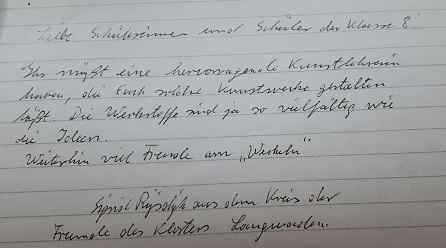 Liebe Schülerinnen und Schüler der Klasse 8
Ihr müßt eine hervorragende Kunstlehrerin
haben, die Euch solche Kunstwerke gestalten
läßt. Die Werkstoffe sind ja so vielfältig wie
die Ideen.
Weiterhin viel Freude am „Werkeln"
aus dem Kreis der
Freunde des Klosters Langwaden.